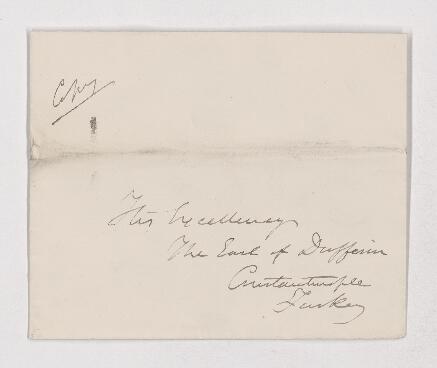 Copy
His Excellency
The Earl of Dufferin
Constantinople
Turkey